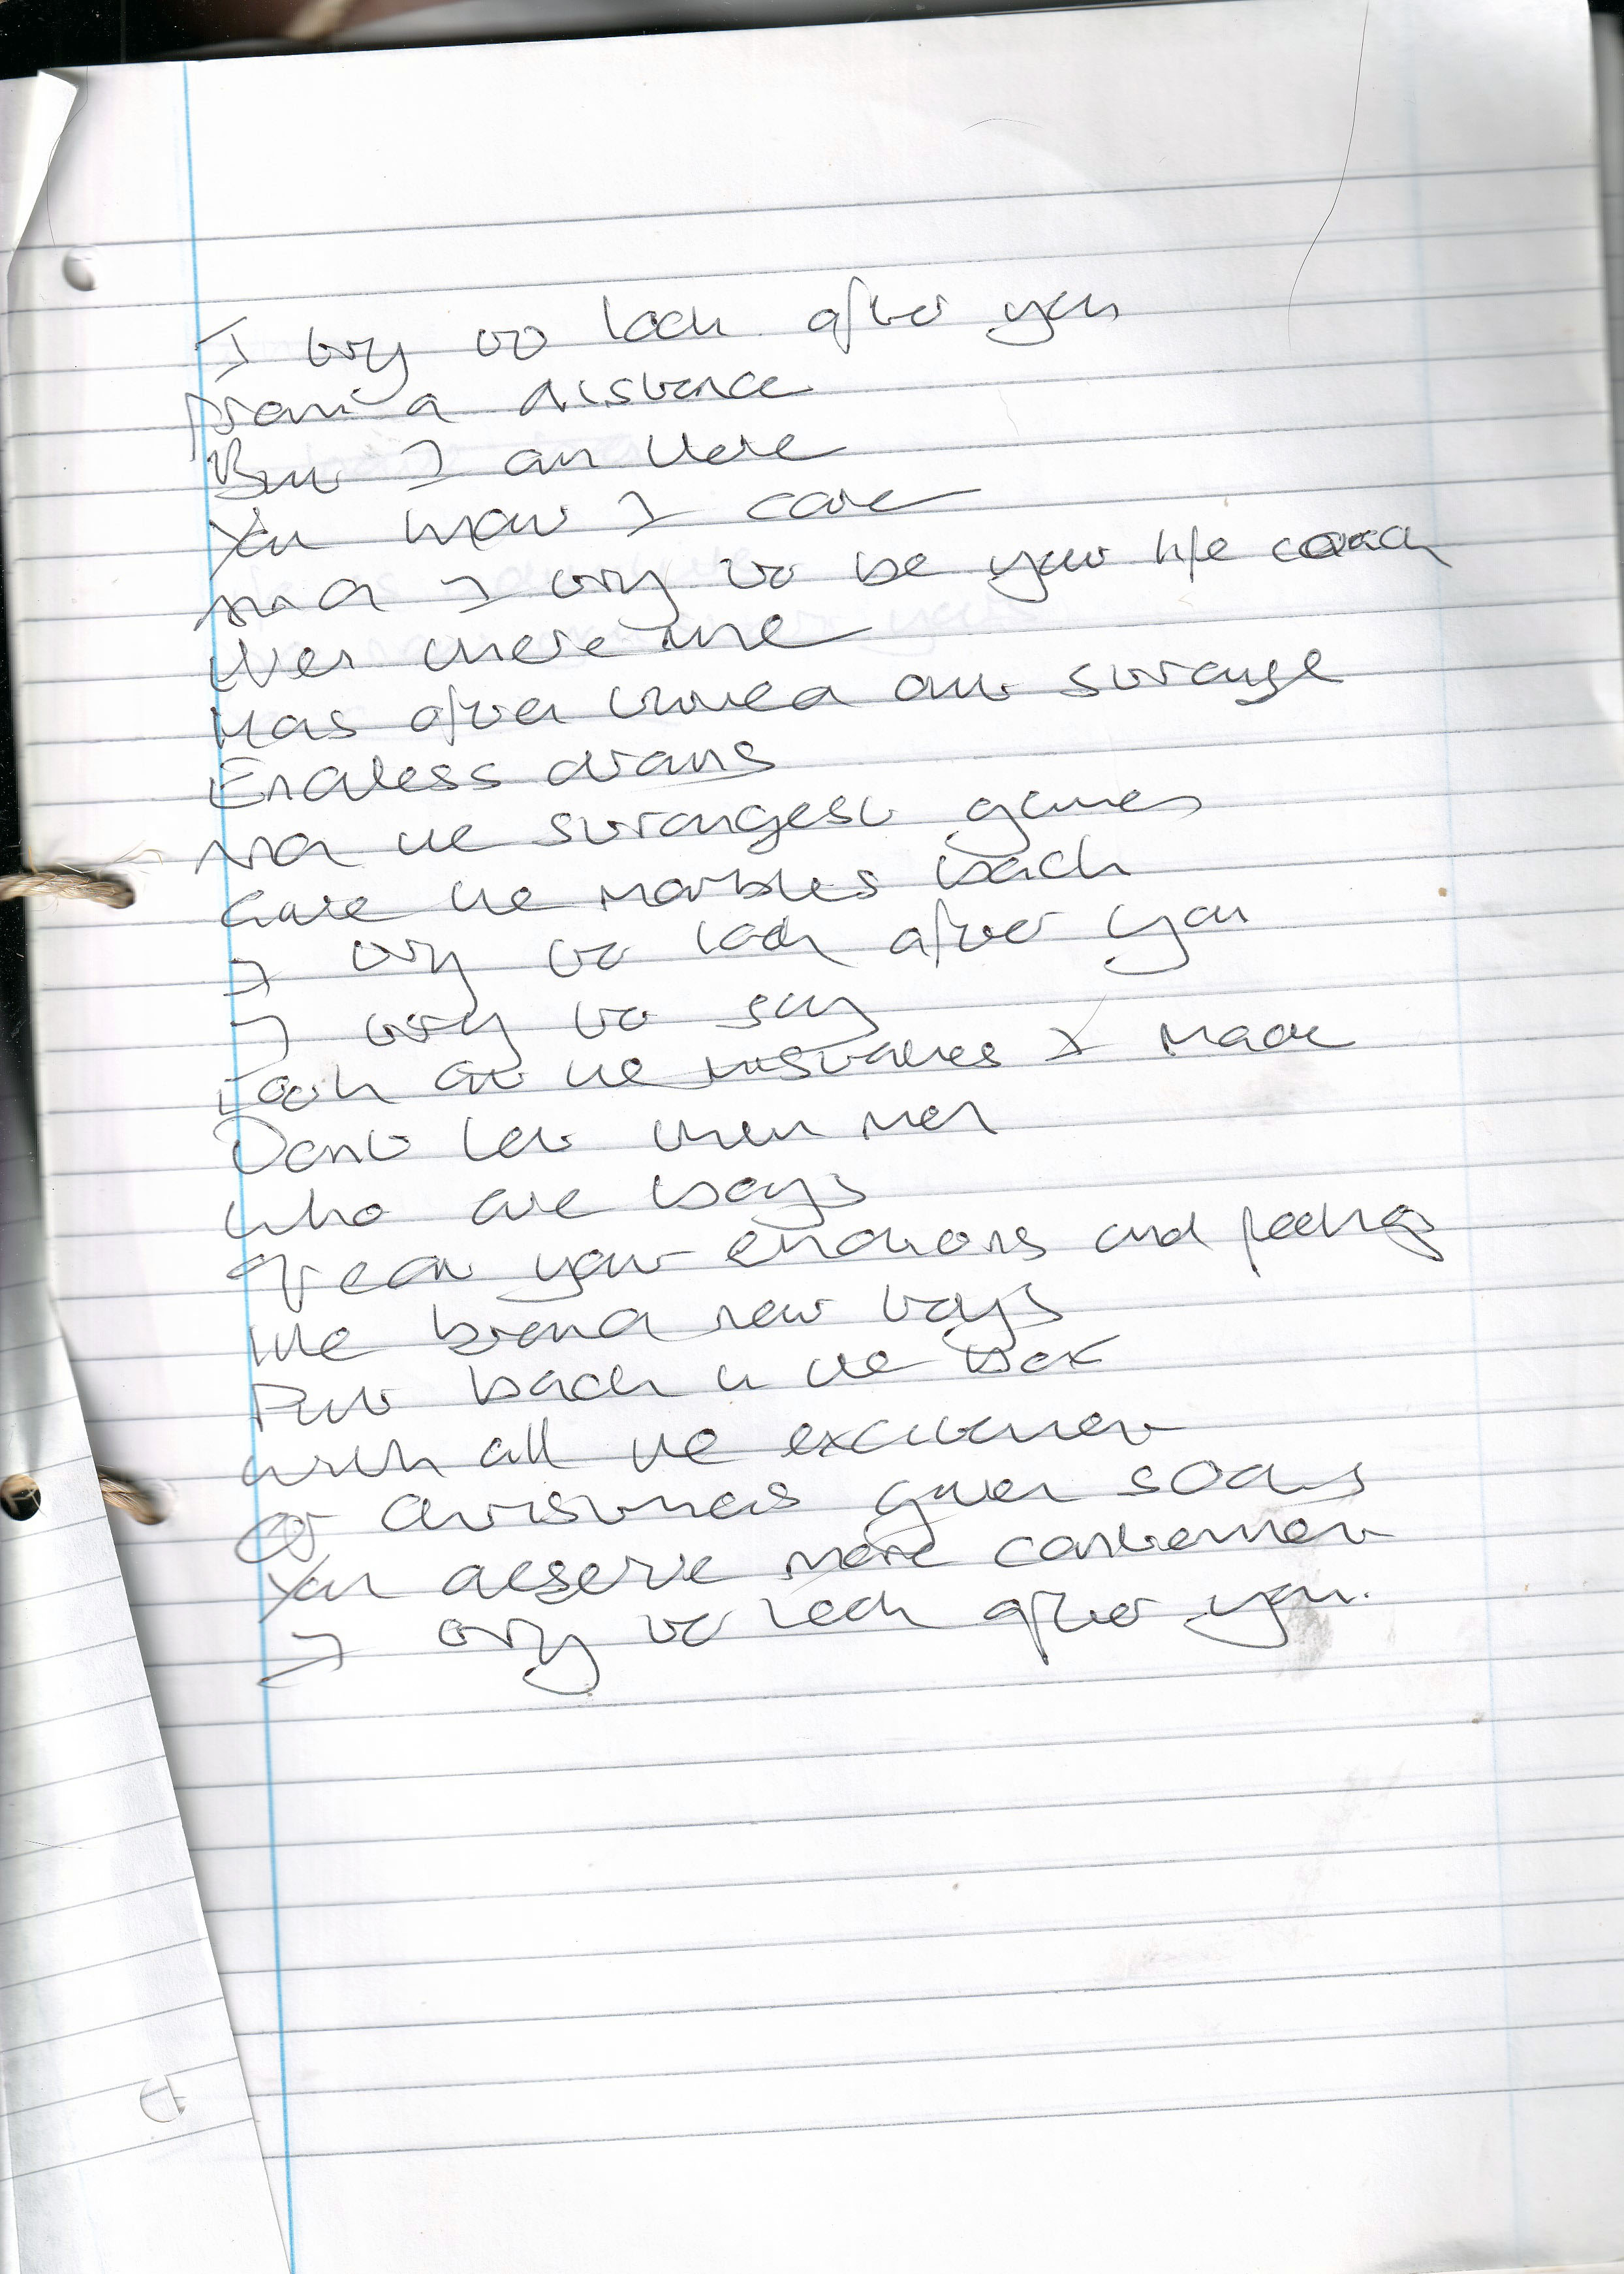 I try to look after you
From a distance
But I am there
You know I care
And I try to be your life coach
When there time
Has often turned out strange
Endless drams
And the strangest games
Gave the marbles back
I try to look after you
I try to say
Look at the mistakes I made
Dont let them men
Who are boys
Treat your emotions and feelings
like brand new toys
Put back in the box
With all the excitement
Of christmas given socks
You deserve more contentment
I try to look after you.